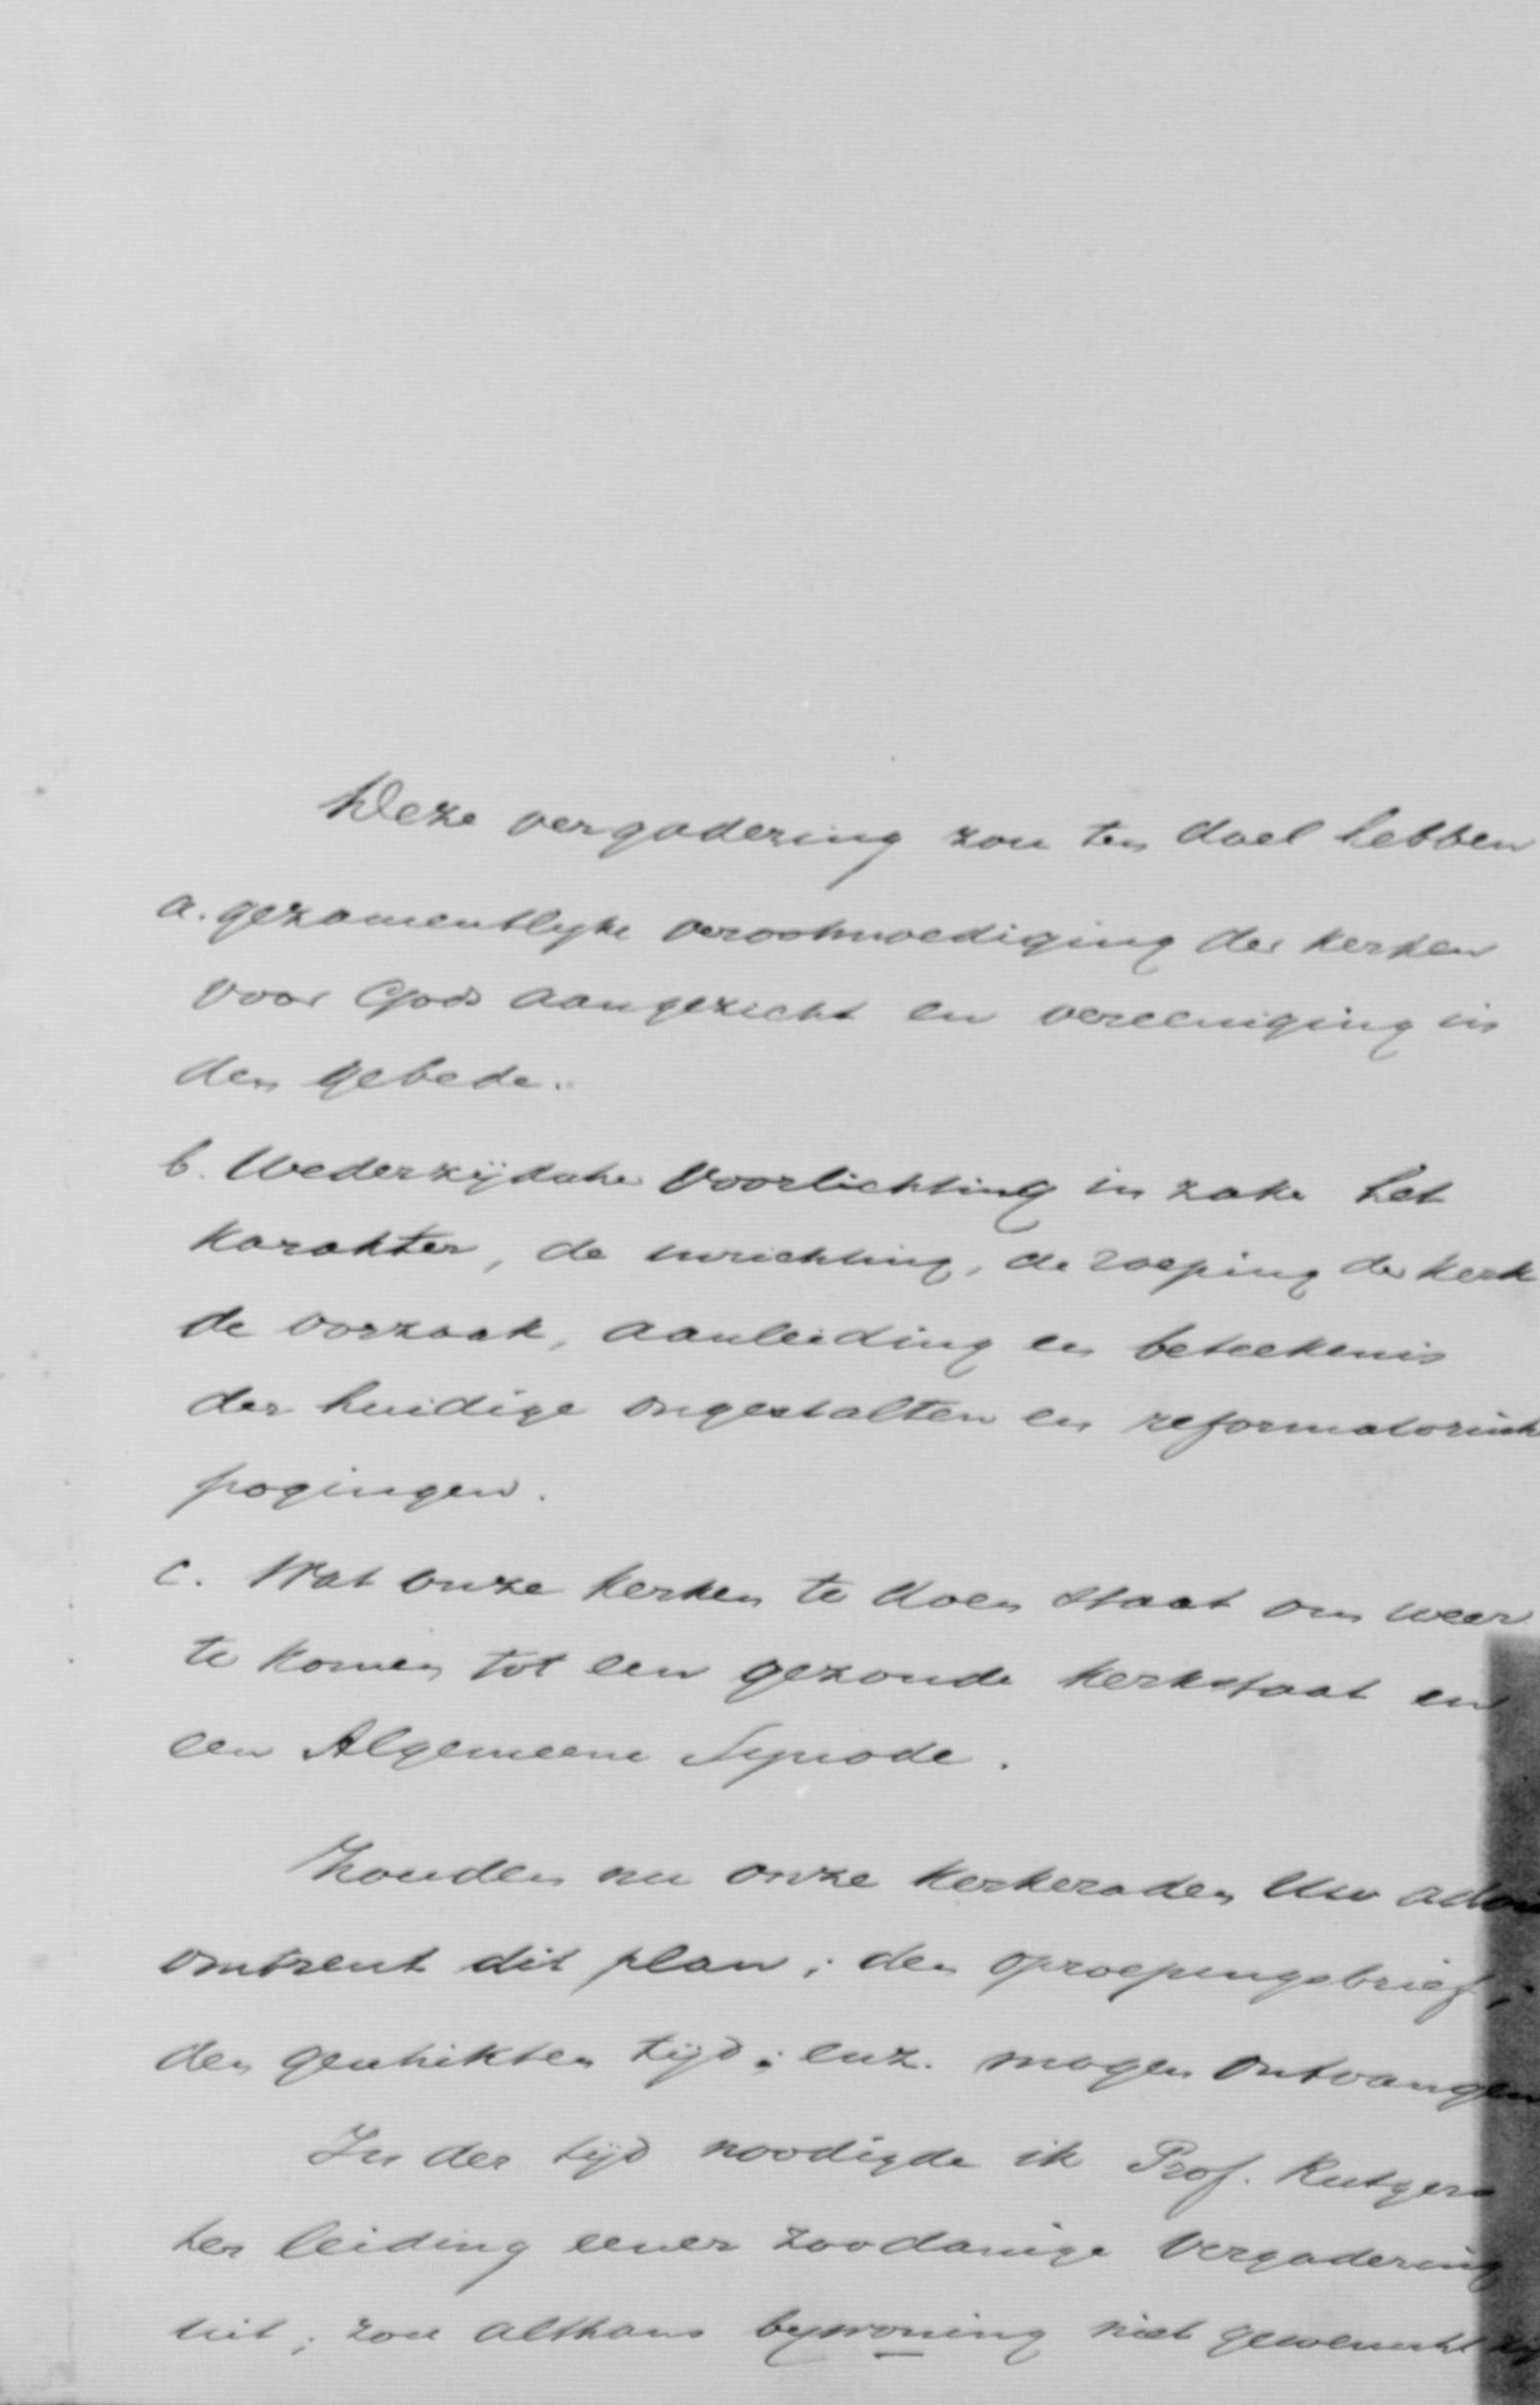 Deze vergadering zou ten doel hebben
a. gezamentlijke verootmoediging der kerken
voor Gods aangezicht en vereeniging in
den gebede.
b. Wederzijdsche voorlichting in zake het
karakter, de inrichting, de roeping der kerk
de oorzaak, aanleiding en beteekenis
der huidige ongestalten en reformatorisch
pogingen.
c. Wat onze kerken te doen staat om weer
te komen tot een gezonde kerkstaat en
een Algemeene Synode.
Zouden nu onze kerkeraden Uw
omtrent dit plan; den oproepingsbrief;
den geschikten tijd; enz. mogen ontvangen
In der tijd noodigde ik Prof. Rutgers
ter leiding eener zoodanige vergadering
uit; zou althans bywoning niet gewenscht